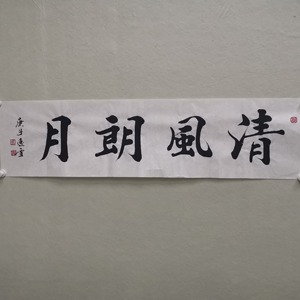 清風朗月
庚子